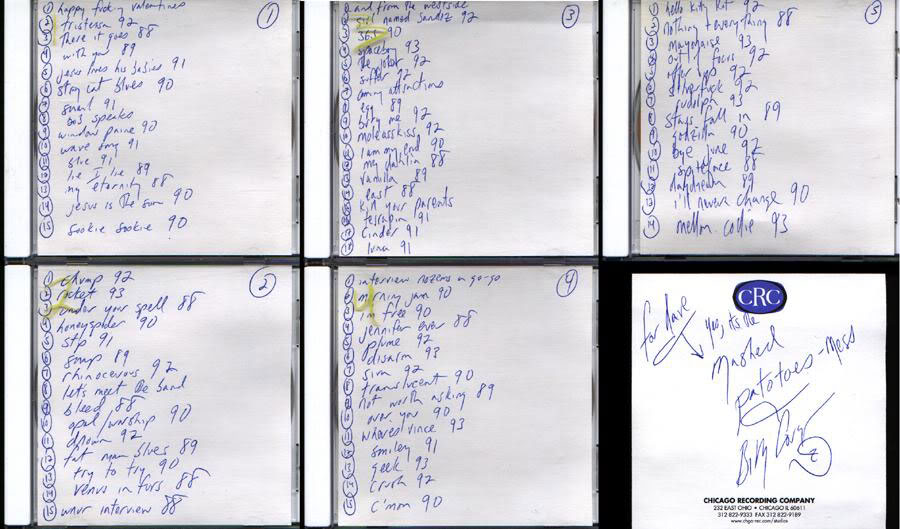 1
1 happy fucking valentines
2 tristessa 92
3 there it goes 88
4 with you 89
5 jesus loves his babies 91
6 stray cat blues 90
7 snail 91
8 bob speaks
9 window paine 90
10 wave song 91
11 blue 91
12 lie I lie 89
13 my eternity 88
14 jesus is the sun 90
15 sookie sookie 90
3
1 and from the westside
2 girl named sandoz 92
3 90
4 spaceboy 93
5 the joker 92
6 suffer 92
7 coming attractions
8 egg 89
9 bury me 92
10 molasskiss 92
11 I am my end 90
12 my dahlia 88
13 vanilla 89
14 east 88
kill your parents
terrapin 91
cinder 91
luna 91
5
1 hello kitty kat 92
2 nothing + everything 88
3 mayonaise 93
4 out of focus 92
5 offer up 92
6 silverfuck 92
7 rudolph 93
8 stars fall in 89
9 godzilla 90
10 bye june 92
11 spiteface 88
12 daydream 89
13 i'll never change 90
14 mellon collie 93
2
1 chump 92
2 rocket 93
3 under your spell 88
4 honeyspider 90
5 stp 91
6 snap 89
7 rhinocerous 92
8 lets meet the band
9 bleed 88
10 opal/worship 90
11 drown 92
12 fat man blues 89
13 try to try 90
14 venus in furs 88
15 wnur interview 88
4
1 interview nozems a go-go
2 morning jam 90
3 im free 90
4 jennifer ever 88
5 plume 92
6 disarm 93
7 siva 92
8 translucent 90
9 not worth asking 89
10 over you 90
11 whoresvince 93
12 smiley 91
13 geek 93
14 crush 92
15 c'mon 90
CRC
for dave
yes, it's the
Mashed
patotoes-mess
Billy Corgan
CHICAGO RECORDING COMPANY
232 EAST OHIO • CHICAGO IL 60611
312 822-9333 FAX 312 822-9189
www.chgo-rec.com/studios